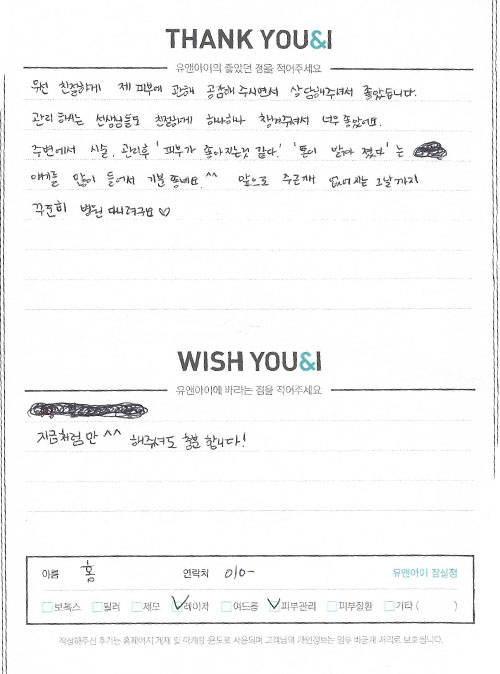 THANK YOU&I
유앤아이의 좋았던 점을 적어주세요
우선 친절하게 제 피부에 관해 공감해 주시면서 상담해주셔서 좋았습니다.
관리 해주는 선생님들도 친절하게 하나하나 챙겨주셔서 너무 좋았어요.
주변에서 시술, 관리후 '피부가 좋아지는것 같다' '톤이 밝아 졌다' 는
얘기를 많이 들어서 기분 좋네요 ^^ 앞으로 주근깨 없어지는 그날까지
꾸준히 병원 다니려구요 ♡
WISH YOU&I
유앤아이에 바라는 점을 적어주세요
지금처럼만 ^^ 해주셔도 충분 합니다!
이름 홍 연락처 010- 유앤아이 잠실점
보톡스 필러 제모 레이저 여드름 피부관리 피부질환 기타 ( )
작성해주신 후기는 홈페이지 게재 및 마케팅 용도로 사용되며 고객님의 개인정보는 일부 비공개 처리로 보호됩니다.